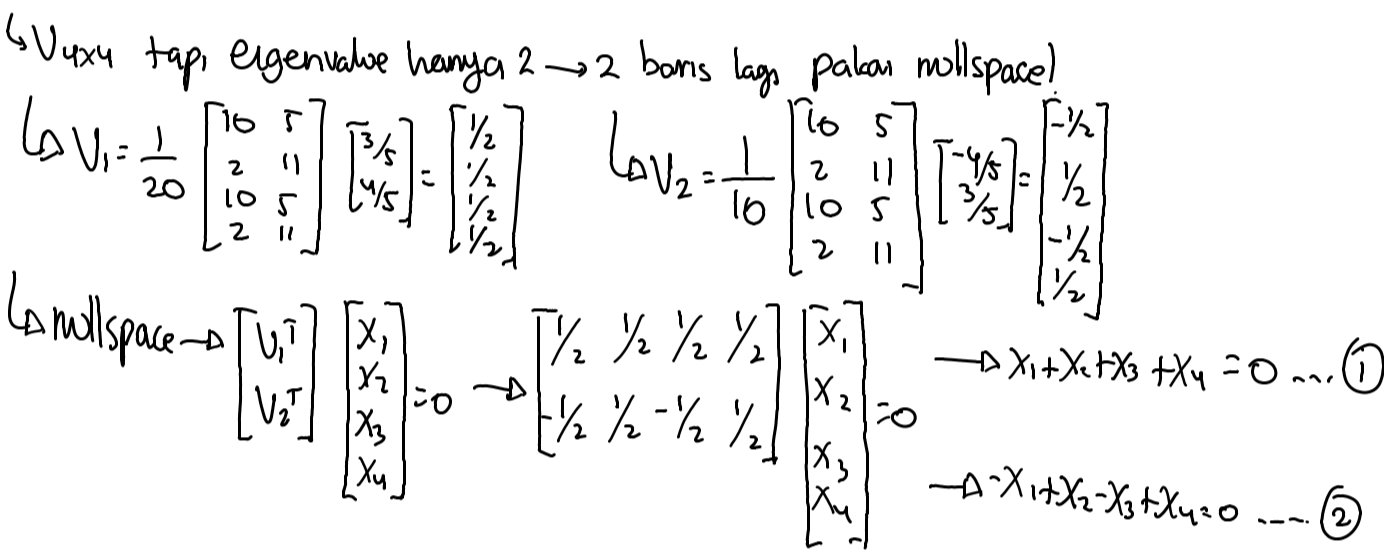 ↳ V4x4 tapi eigenvalue hanya 2 → 2 baris lagi pakai nullspace!
↳ V₁ = 1/20 [10 5; 2 11; 10 5; 2 11] [3/5; 4/5] = [1/2; 1/2; 1/2; 1/2]
↳ V₂ = 1/10 [10 5; 2 11; 10 5; 2 11] [-4/5; 3/5] = [-1/2; 1/2; -1/2; 1/2]
↳ nullspace → [V₁ᵀ; V₂ᵀ] [X₁; X₂; X₃; X₄] = 0 → [1/2 1/2 1/2 1/2; -1/2 1/2 -1/2 1/2] [X₁; X₂; X₃; X₄] = 0
→ X₁+X₂+X₃+X₄ = 0 .... ①
→ -X₁+X₂-X₃+X₄ = 0 ..... ②